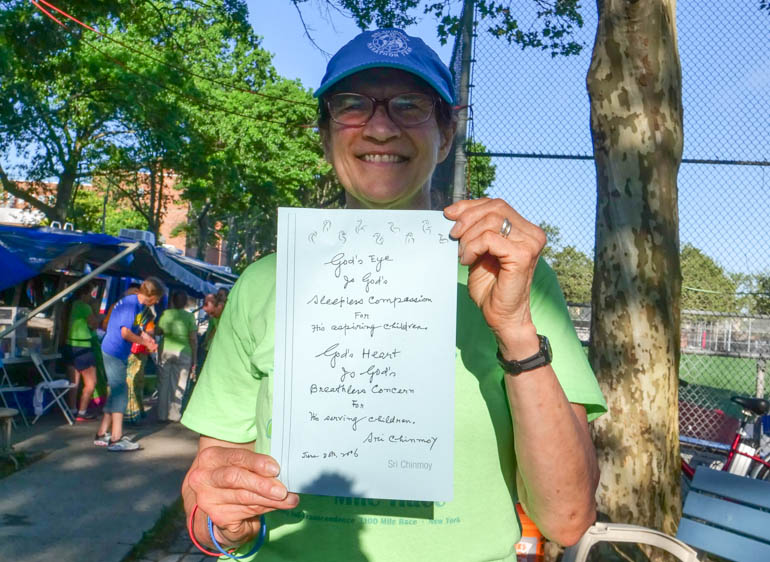 God's Eye
Is God's
Sleepless Compassion
For
His aspiring children.
God's Heart
Is God's
Breathless Concern
For
His serving children.
Sri Chinmoy
June 2006
Sri Chinmoy
Mile Race
Transcendence 3100 Mile Race · New York